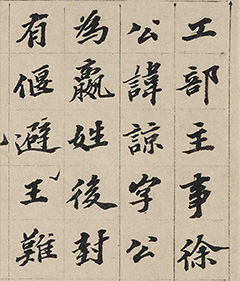 工部主事徐
公諱諒字公
為嬴姓後封
有偃避王難